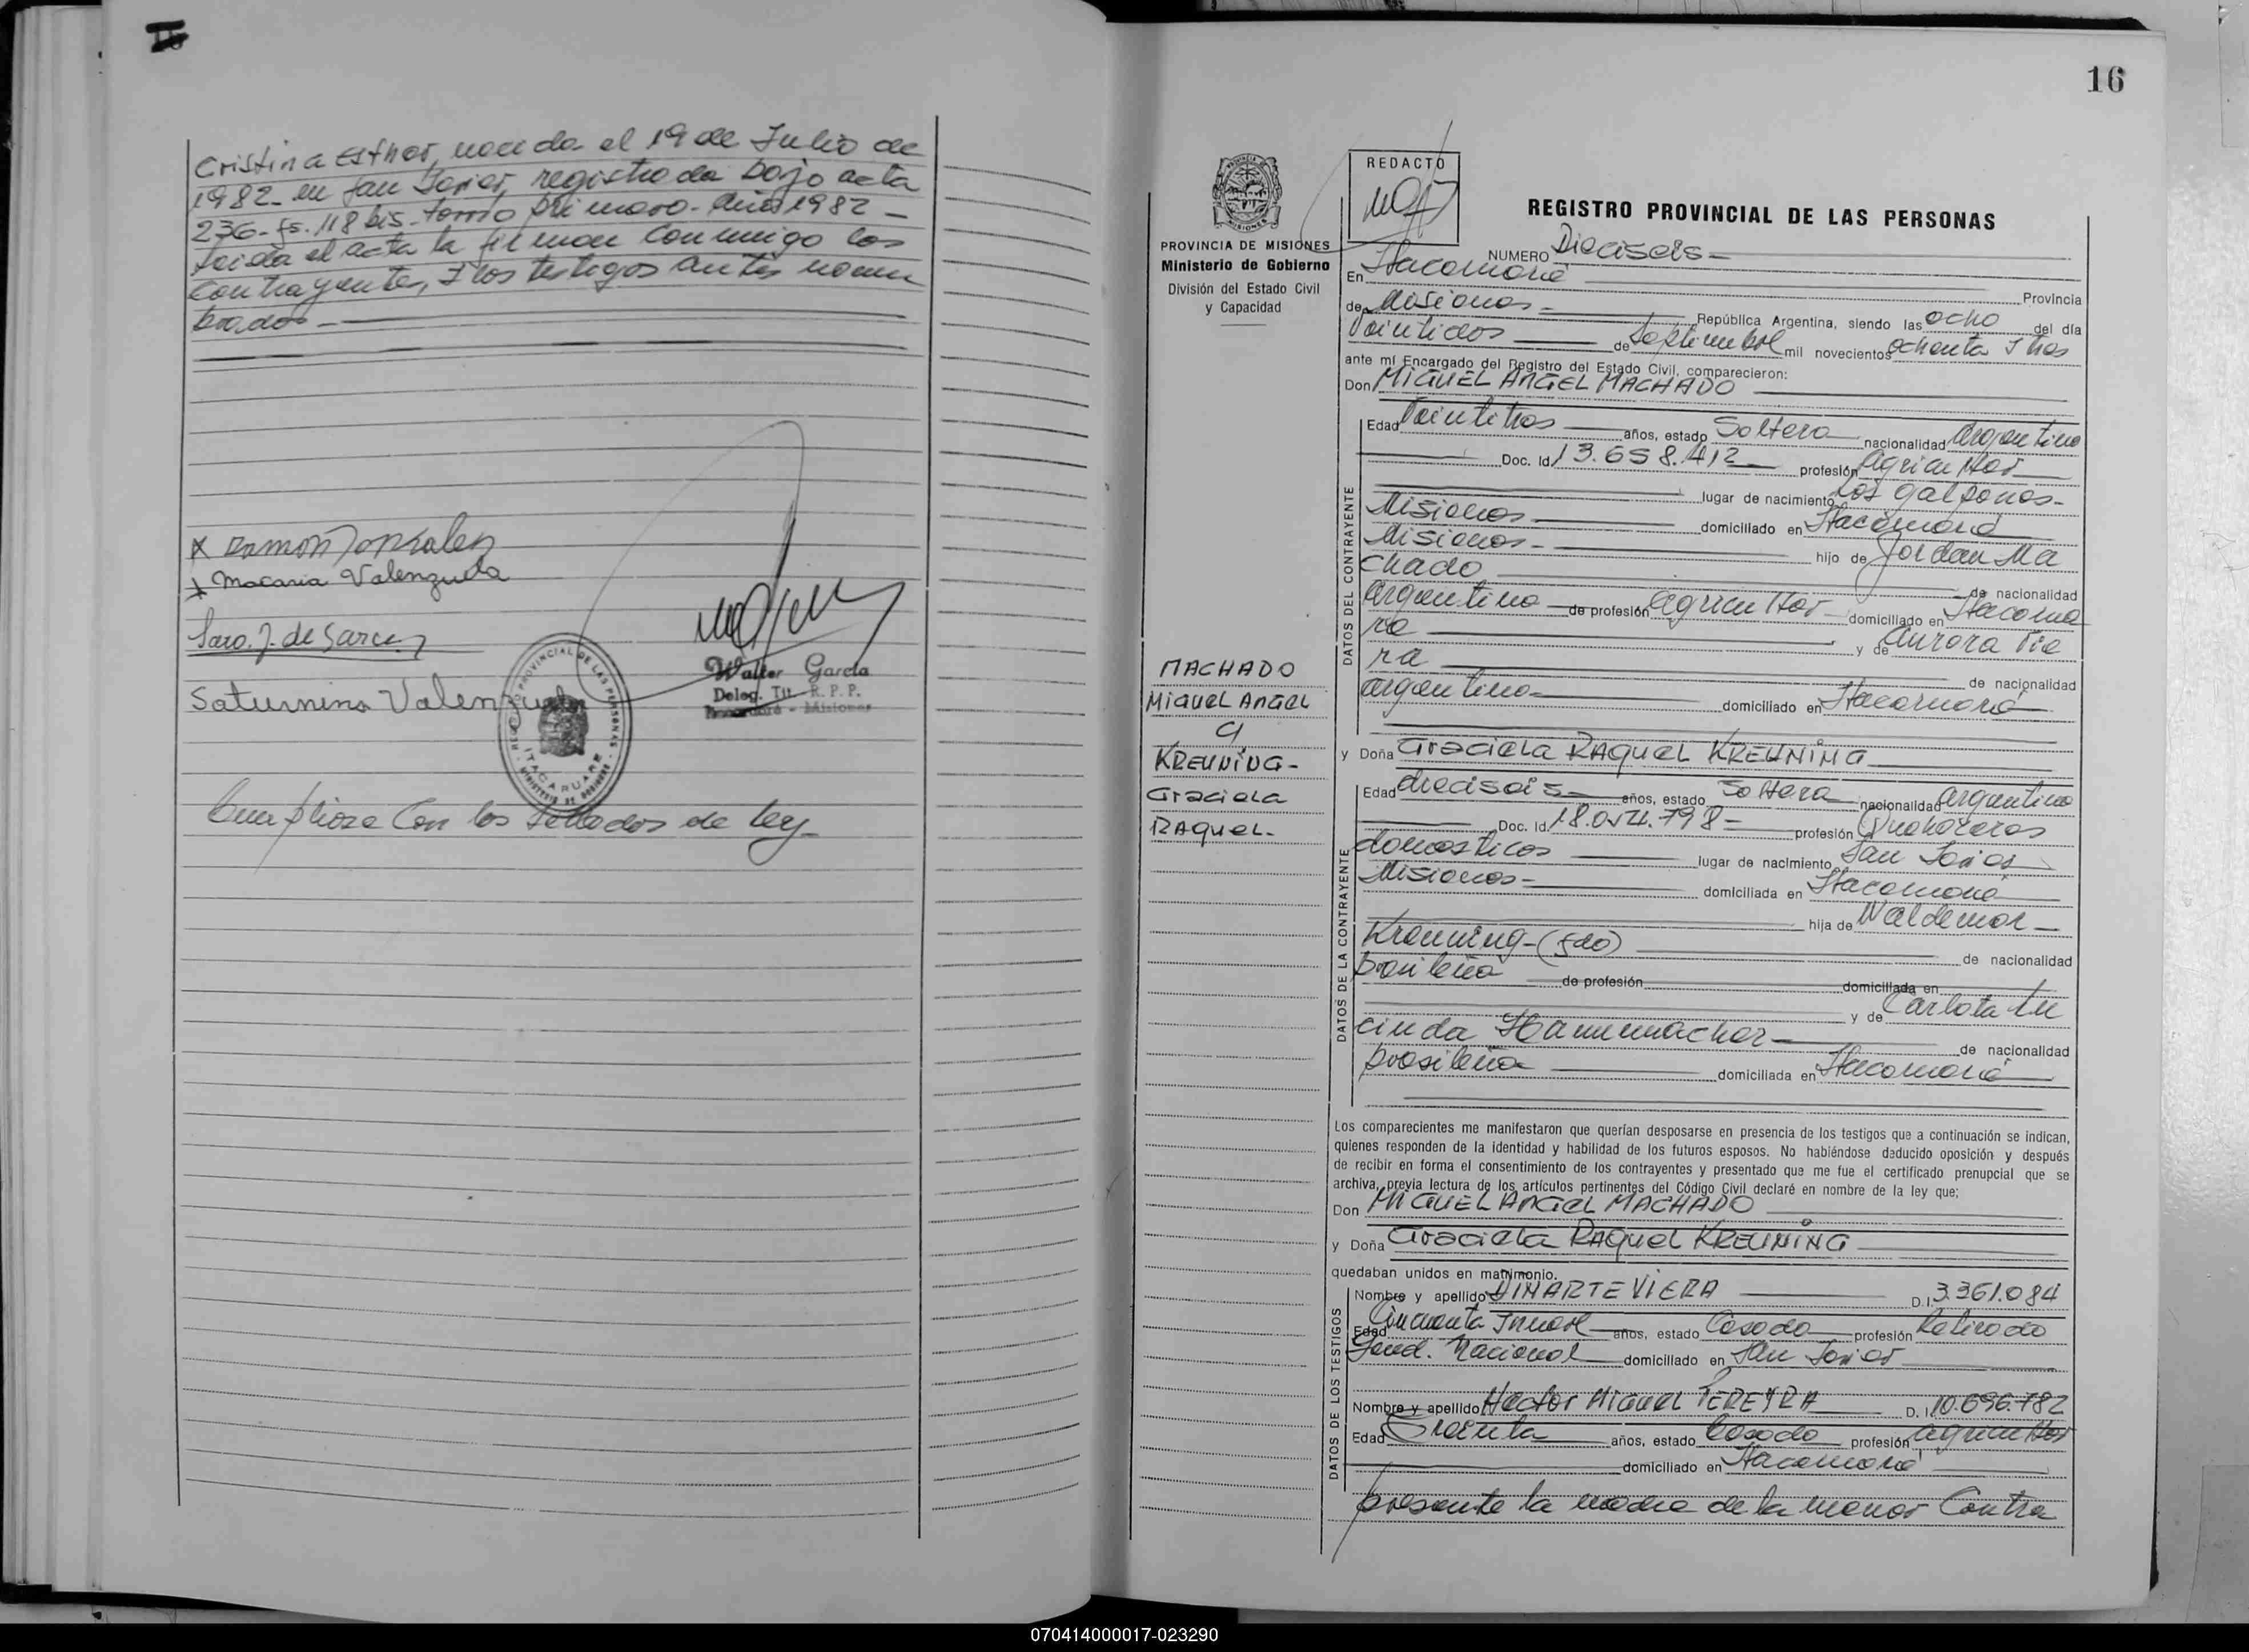 Cristina Esther, nacida el 19 de Julio de
1982- en San Javier, registrada bajo acta
236- fs. 118 bis- tomo primero- año 1982 -
Leida el acta la firman conmigo los
contrayentes, y los testigos antes nom
brados -
x Ramon Gonzalez
x Macaria Valenzuela
Saro. J. de Sarce
Saturnino Valenzuela
Walter Garcia
Deleg. Tit. R. P. P.
Itacaruaré - Misiones
REGISTRO PROVINCIAL DE LAS PERSONAS
ITACARUARE
MINISTERIO DE GOBIERNO
Cumpliose con los sellados de ley-
16
PROVINCIA DE MISIONES
Ministerio de Gobierno
División del Estado Civil
y Capacidad
MACHADO
Miguel Angel
c/
KREUNING-
Graciela
RAQUEL-
REDACTO
REGISTRO PROVINCIAL DE LAS PERSONAS
NUMERO Dieciseis -
En Itacaruaré
Provincia
de Misiones - República Argentina, siendo las ocho del día
Veintidos de Septiembre mil novecientos ochenta y tres
ante mí Encargado del Registro del Estado Civil, comparecieron:
Don MIGUEL ANGEL MACHADO
DATOS DEL CONTRAYENTE
Edad Veintitres años, estado Soltero nacionalidad argentino
Doc. Id. 13.658.412 profesión agricultor
lugar de nacimiento Los galpones-
Misiones domiciliado en Itacaruaré
Misiones- hijo de Jordan Ma
chado de nacionalidad
argentino de profesión agricultor domiciliado en Itacarua
ré y de Aurora Vie
ra de nacionalidad
argentina domiciliado en Itacaruaré
y Doña Graciela RAQUEL KREUNING
DATOS DE LA CONTRAYENTE
Edad dieciseis- años, estado Soltera nacionalidad argentina
Doc. Id. 798- profesión Quehaceres
domesticos lugar de nacimiento San Javier
Misiones- domiciliada en Itacaruaré
hija de Waldemar -
Kreuning- (fdo) de nacionalidad
brasileña de profesión domiciliada en
y de Carlota Lu
cinda Hammacher- de nacionalidad
brasileña domiciliada en Itacaruaré
Los comparecientes me manifestaron que querían desposarse en presencia de los testigos que a continuación se indican,
quienes responden de la identidad y habilidad de los futuros esposos. No habiéndose deducido oposición y después
de recibir en forma el consentimiento de los contrayentes y presentado que me fue el certificado prenupcial que se
archiva, previa lectura de los artículos pertinentes del Código Civil declaré en nombre de la ley que:
Don MIGUEL ANGEL MACHADO
y Doña Graciela RAQUEL KREUNING
quedaban unidos en matrimonio.
DATOS DE LOS TESTIGOS
Nombre y apellido DINARTE VIERA D.I. 3.361.084
Edad Cincuenta y nueve años, estado Casado profesión Retirado
Gend. Nacional domiciliado en San Javier
Nombre y apellido Hector Miguel PEREYRA D.I. 10.696.782
Edad Treinta años, estado Casado profesión agricultor
domiciliado en Itacaruaré
presente la madre de la menor Contra
070414000017-023290